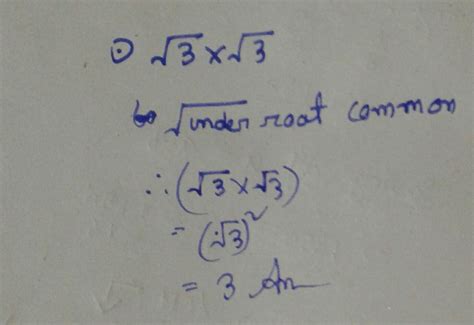 ⊙ √3×√3
√under root common
∴ (√3×√3)
= (√3)²
= 3 Ans